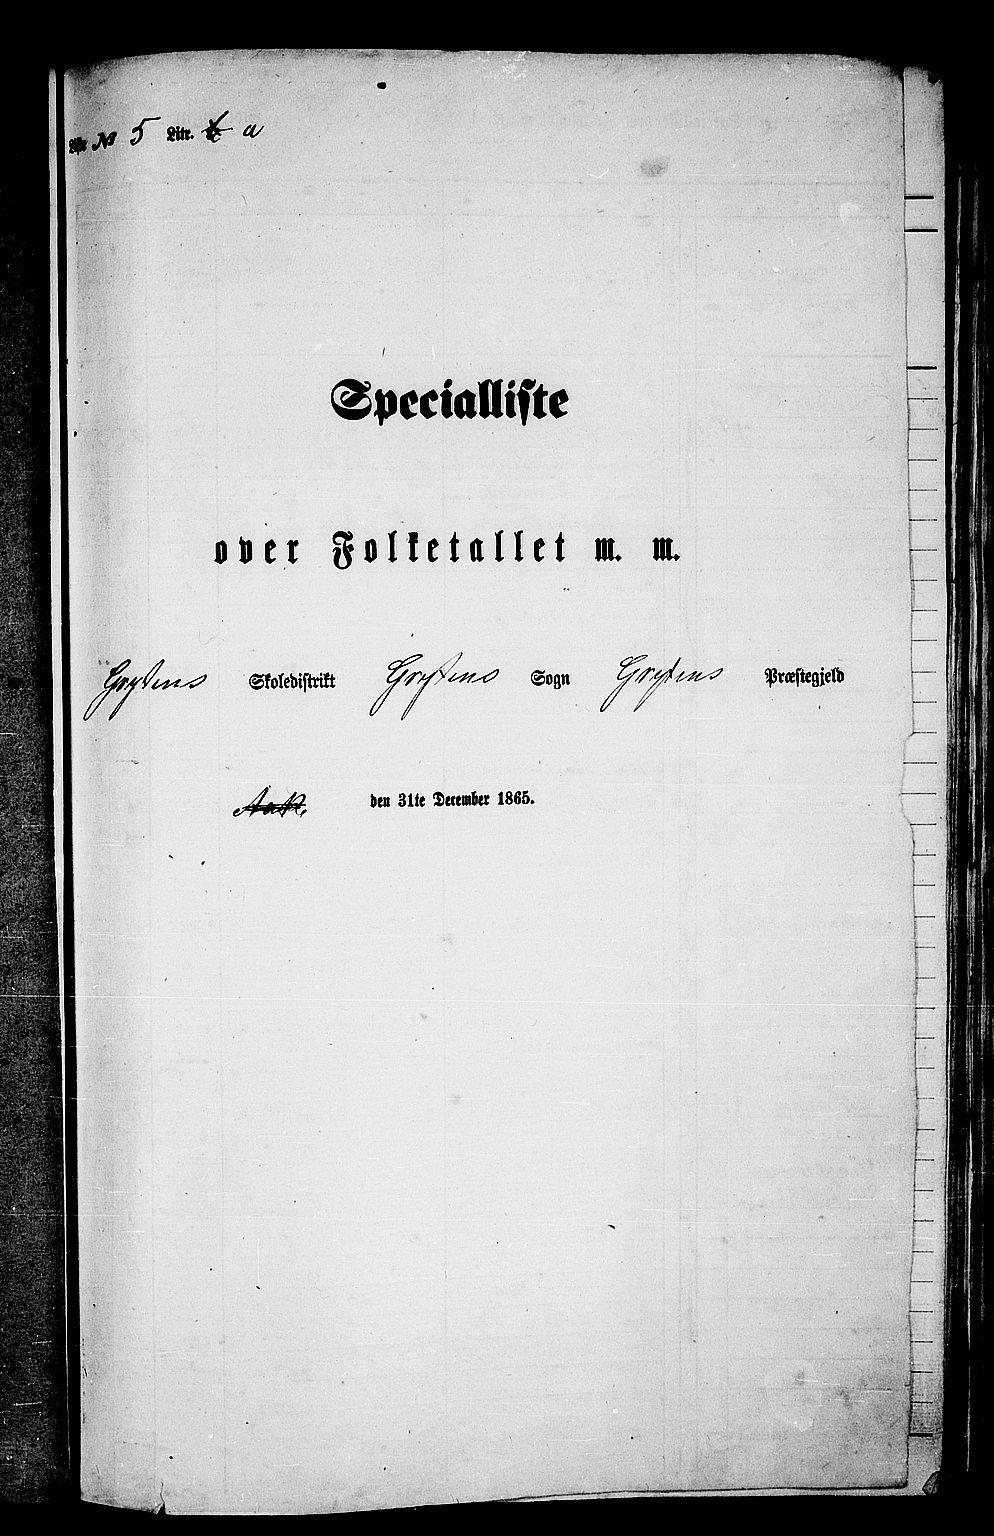 Liste № 5 Litr. a
Specialliste
over Folketallet m. m.
Grytens Skoledistrikt Grytens Sogn Grytens Præstegjeld
den 31te December 1865.